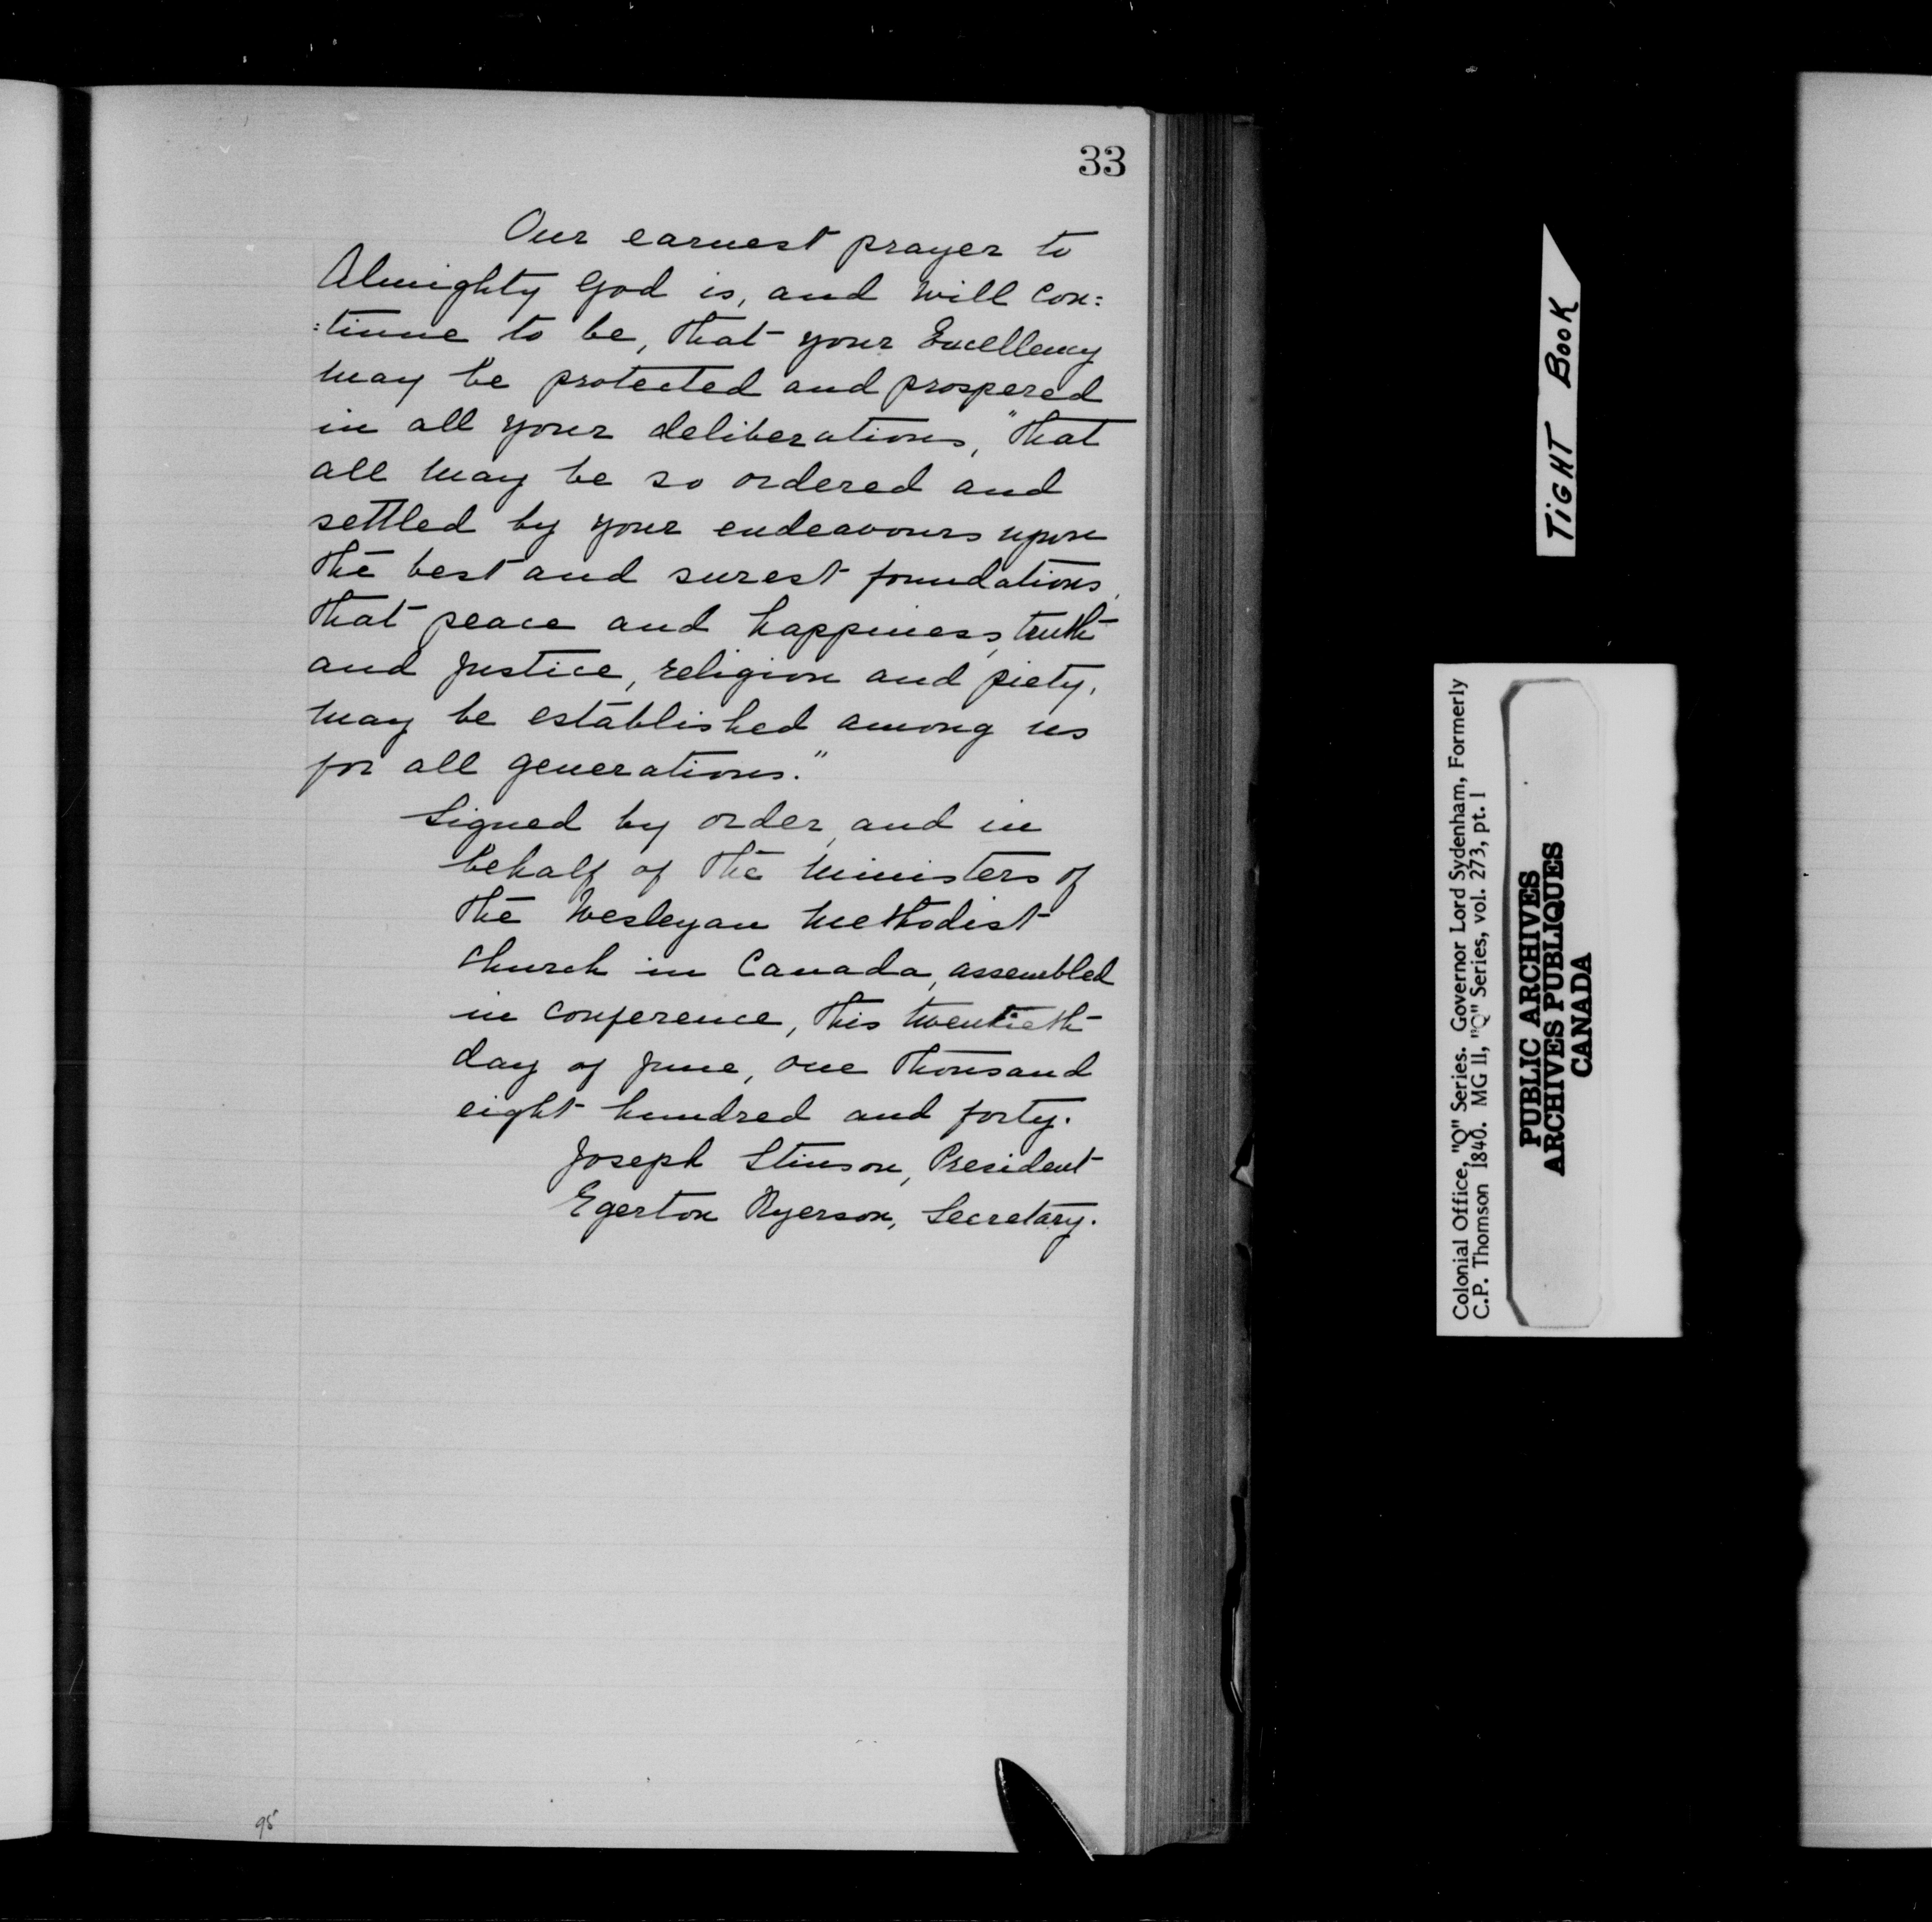 33
Our earnest prayer to
Almighty God is, and will con:
:tinue to be, that your Excellency
may be protected and prospered
in all your deliberations, "that
all may be so ordered and
settled by your endeavours upon
the best and surest foundations,
that peace and happiness, truth
and justice, religion and piety,
may be established among us
for all generations."
Signed by order, and in
behalf of the Ministers of
the Wesleyan Methodist
Church in Canada, assembled
in Conference, this twentieth
day of June, one thousand
eight hundred and forty.
Joseph Stinson, President
Egerton Ryerson, Secretary.
95
TIGHT BOOK
Colonial Office, "Q" Series. Governor Lord Sydenham, Formerly
C.P. Thomson 1840. MG 11, "Q" Series, vol. 273, pt. 1
PUBLIC ARCHIVES
ARCHIVES PUBLIQUES
CANADA